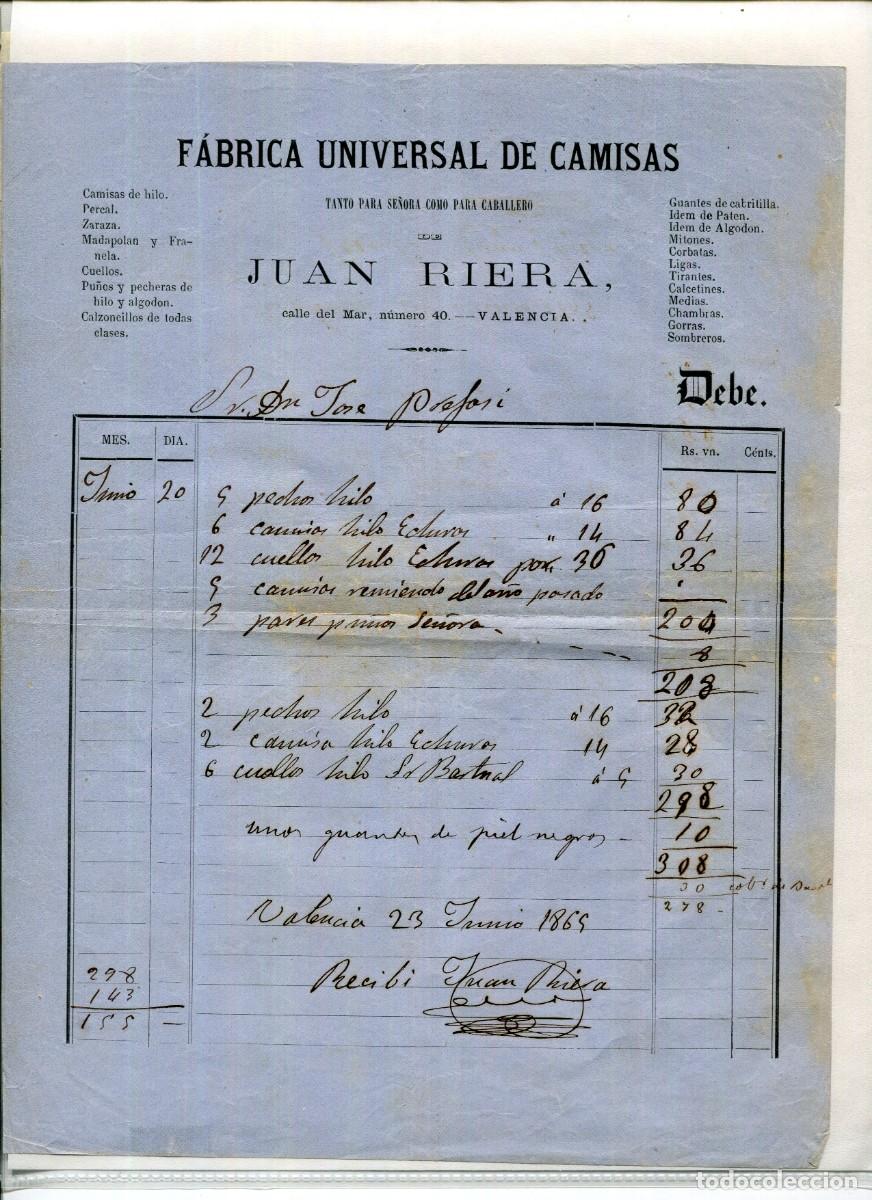 FÁBRICA UNIVERSAL DE CAMISAS
TANTO PARA SEÑORA COMO PARA CABALLERO
DE
JUAN RIERA,
calle del Mar, número 40.—VALENCIA.
Camisas de hilo.
Percal.
Zaraza.
Madapolan y Fra-
nela.
Cuellos.
Puños y pecheras de
hilo y algodon.
Calzoncillos de todas
clases.
Guantes de cabritilla.
Idem de Paten.
Idem de Algodon.
Mitones.
Corbatas.
Ligas.
Tirantes.
Calcetines.
Medias.
Chambras.
Gorras.
Sombreros.
Debe.
Sr. Dn Jose
MES. DIA. Rs. vn. Cénts.
Junio 20 5 pechos hilo á 16 80
6 camisas hilo Echuras " 14 84
12 cuellos hilo Echuras por 36 36
5 camisas remiendo del año pasado
3 pares puños Señora 200
8
208
2 pechos hilo á 16 32
2 camisa hilo Echuras 14 28
6 cuellos hilo Sr á 5 30
298
unos guantes de piel negros 10
308
30
278
Valencia 23 Junio 1865
Recibi Juan Riera
298
143
155
todocoleccion